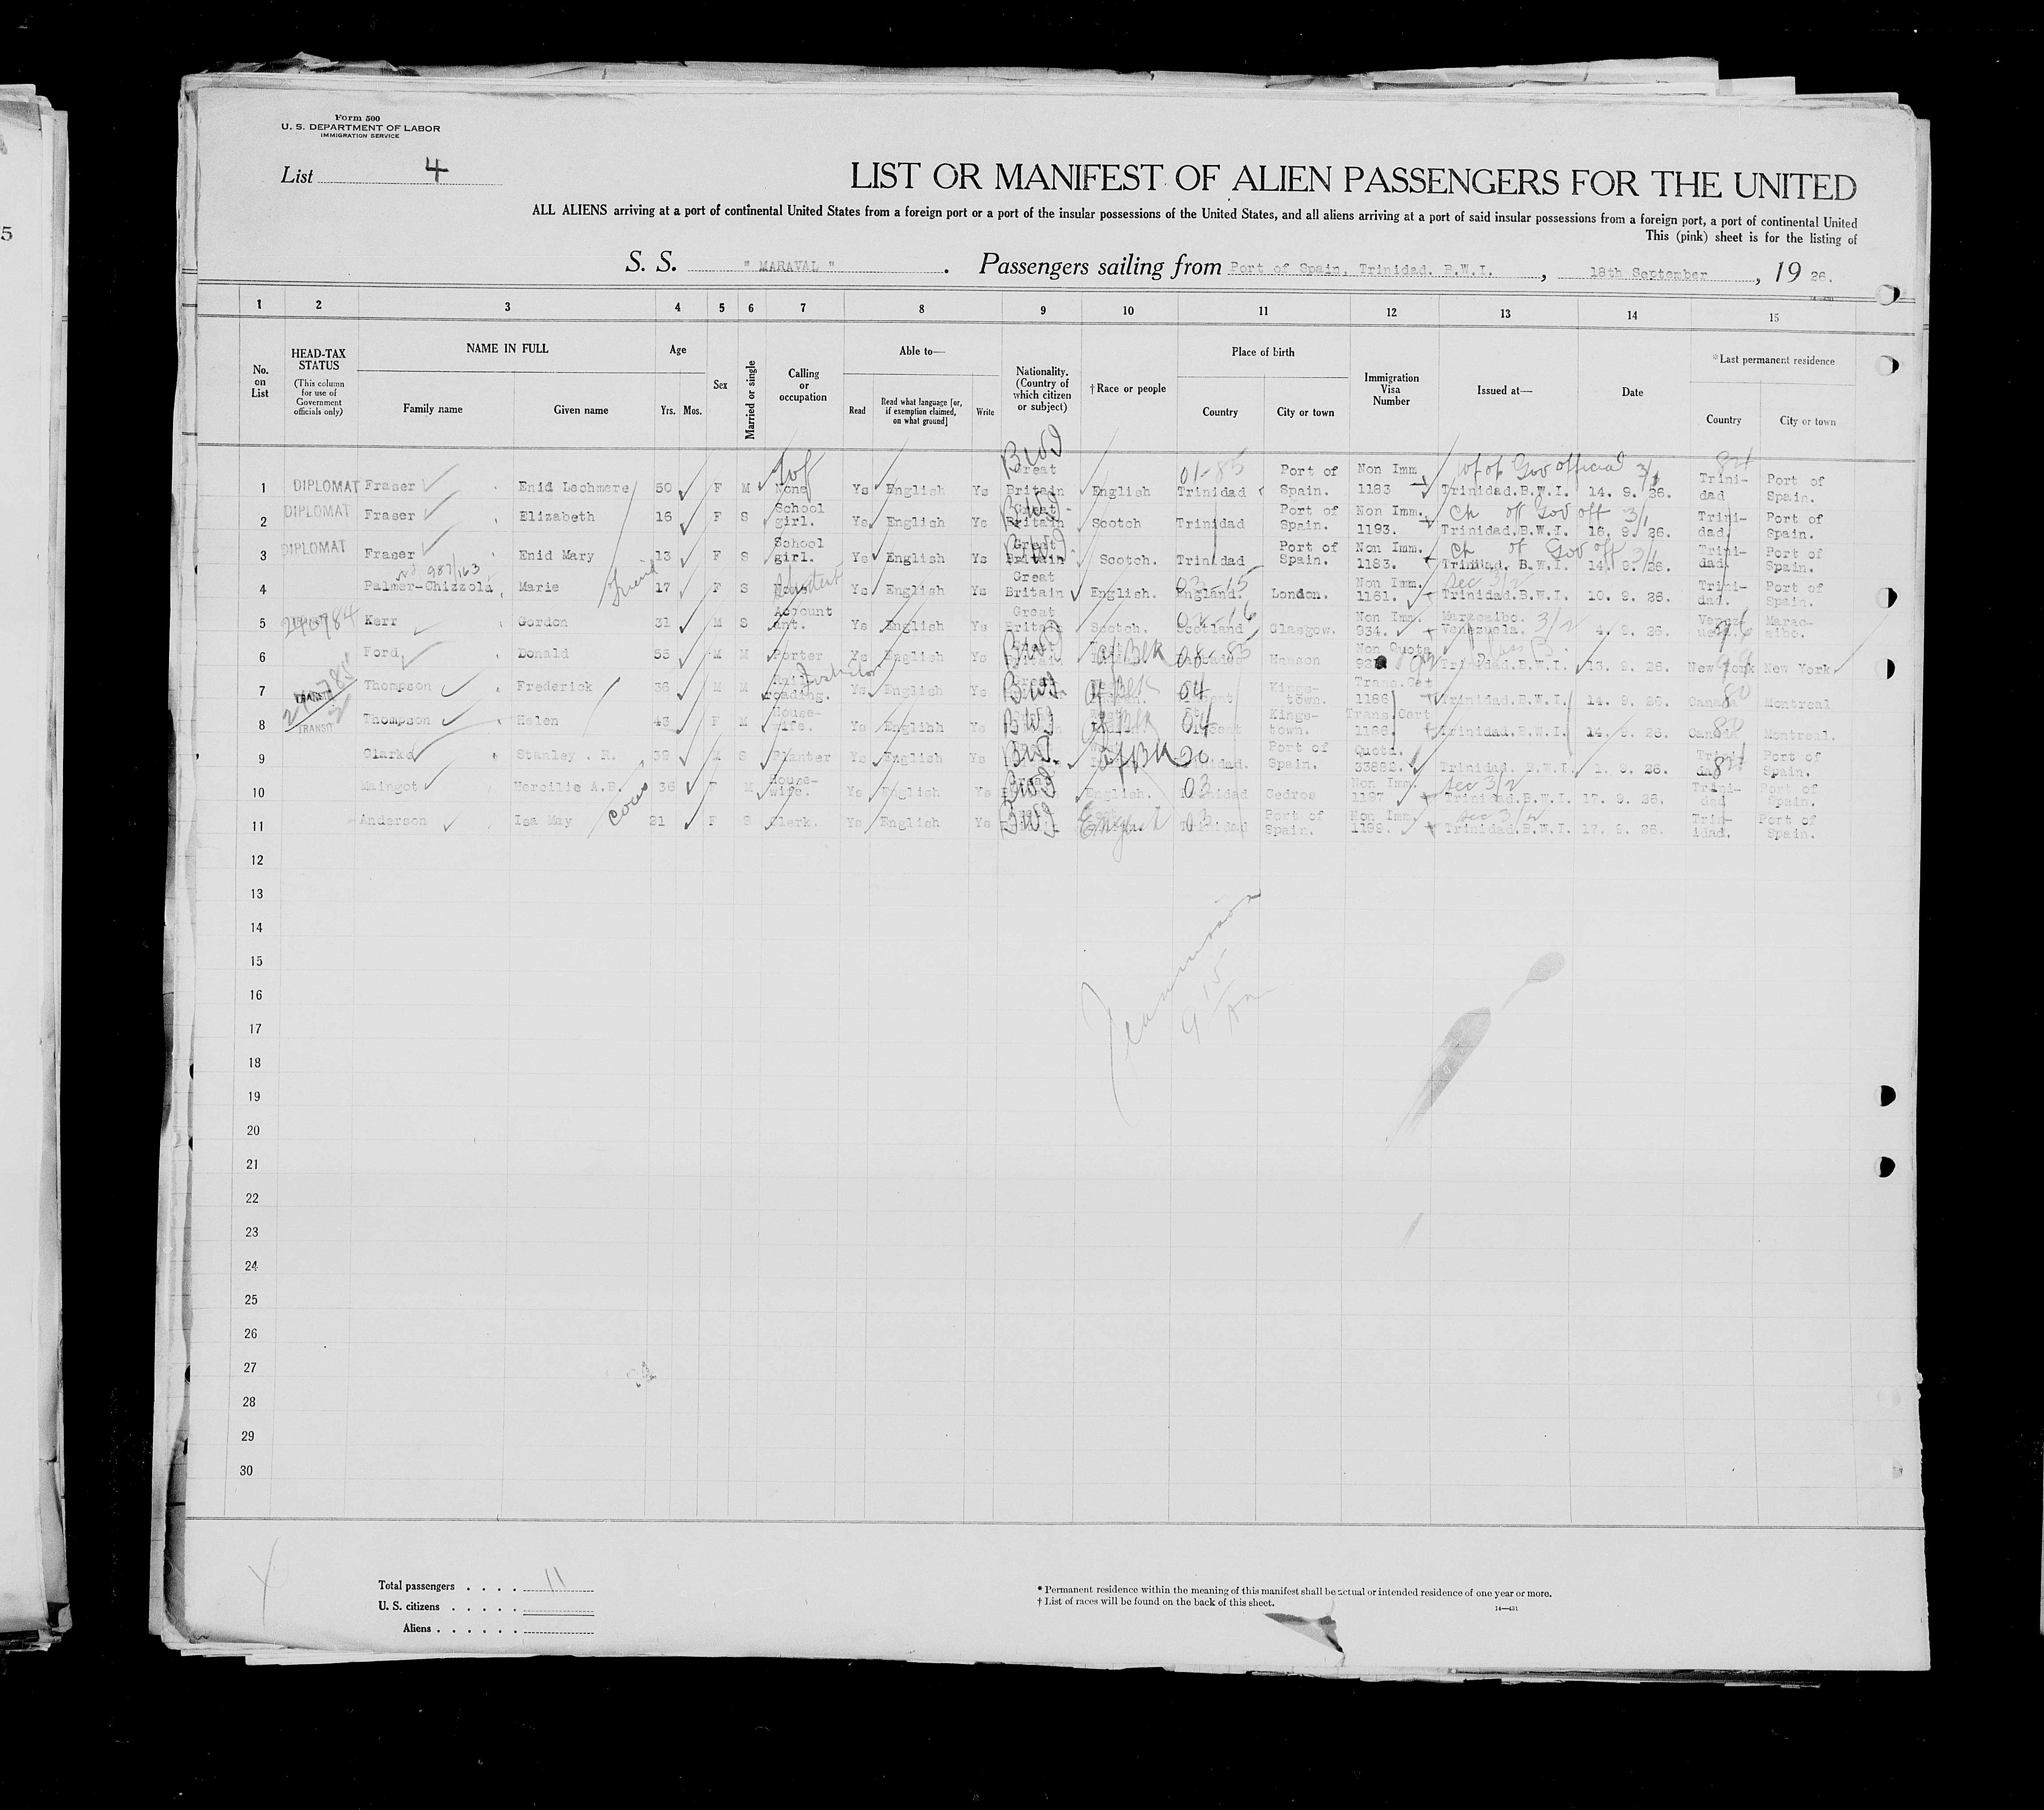 5
Form 500
U. S. DEPARTMENT OF LABOR
IMMIGRATION SERVICE
List 4
LIST OR MANIFEST OF ALIEN PASSENGERS FOR THE UNITED
ALL ALIENS arriving at a port of continental United States from a foreign port or a port of the insular possessions of the United States, and all aliens arriving at a port of said insular possessions from a foreign port, a port of continental United
This (pink) sheet is for the listing of
S. S. " MARAVAL " . Passengers sailing from Port of Spain, Trinidad. B.W.I. , 18th September , 19 26.
1 2 3 4 5 6 7 8 9 10 11 12 13 14 15
No. on List
HEAD-TAX STATUS (This column for use of Government officials only)
NAME IN FULL
Family name
Given name
Age
Yrs. Mos.
Sex
Married or single
Calling or occupation
Able to—
Read
Read what language [or, if exemption claimed, on what ground]
Write
Nationality. (Country of which citizen or subject)
†Race or people
Place of birth
Country
City or town
Immigration Visa Number
Issued at—
Date
*Last permanent residence
Country
City or town
1 DIPLOMAT Fraser Enid Lechmere 50 F M None Wf Ys English Ys Great Britain BWI English Trinidad 01-85 Port of Spain. Non Imm 1183 Wf of Gov official 3/1 Trinidad.B.W.I. 14. 9. 26. Trini-dad 84 Port of Spain.
2 DIPLOMAT Fraser Elizabeth 16 F S School girl. Ys English Ys Great Britain Scotch Trinidad Port of Spain. Non Imm. 1193. Ch of Gov off 3/1 Trinidad.B.W.I. 16. 9. 26. Trini-dad. Port of Spain.
3 DIPLOMAT Fraser Enid Mary 13 F S School girl. Ys English Ys Great Britain Scotch. Trinidad Port of Spain. Non Imm. 1183. Ch of Gov off 3/1 Trinidad. B.W.I. 14. 9. 26. Trini-dad. Port of Spain.
4 987/163 Palmer-Chizzola Marie friend 17 F S Ys English Ys Great Britain English. England. 03-15 London. Non Imm. 1161. Sec 3/2 Trinidad.B.W.I. 10. 9. 26. Trini-dad. Port of Spain.
5 Kerr Gordon 31 M S Account ant. Ys English Ys Great Britain Scotch. Scotland Glasgow. Non Imm. 934. Maracaibo. Venezuela. 3/2 4. 9. 26. Marac-aibo.
6 Ford Donald 55 M M Porter Ys English Ys BWI Af Blk 08-83 Hanson Non Quota Trinidad.B.W.I. 13. 9. 26. New York New York
7 TRANSIT Thompson Frederick 36 M M Rail-roading. Ys English Ys BWI Af Blk 04 Kings-town. Trans.Cet 1186 Trinidad.B.W.I. 14. 9. 26. Canada 80 Montreal
8 TRANSIT Thompson Helen 43 F M House-wife. Ys Englihh Ys BWI Af Blk 04 Kings-town. Trans.Cert 1186. Trinidad.B.W.I. 14. 9. 26. Canada 80 Montreal.
9 Clarke Stanley . R. 39 M S Planter Ys English Ys BWI. Af Blk 20 Port of Spain. Quota. 33882. Trinidad. B.W.I. 1. 9. 26. 84 Port of Spain.
10 Maingot Hercilie A.B. 36 F M House-wife. Ys English Ys BWI English. Trinidad 03 Cedros Non Imm. 1197 Sec 3/2 Trinidad.B.W.I. 17. 9. 26. Trini-dad Port of Spain.
11 Anderson Isa May 21 F S Clerk. Ys English Ys BWI English Trinidad 03 Port of Spain. Non Imm. 1199. Sec 3/2 Trinidad.B.W.I. 17. 9. 26. Trin-idad. Port of Spain.
12
13
14
15
9 15
Am
16
17
18
19
20
21
22
23
24
25
26
27
28
29
30
Total passengers . . . . 11
U. S. citizens . . . . .
Aliens . . . . . .
* Permanent residence within the meaning of this manifest shall be actual or intended residence of one year or more.
† List of races will be found on the back of this sheet.
14—431